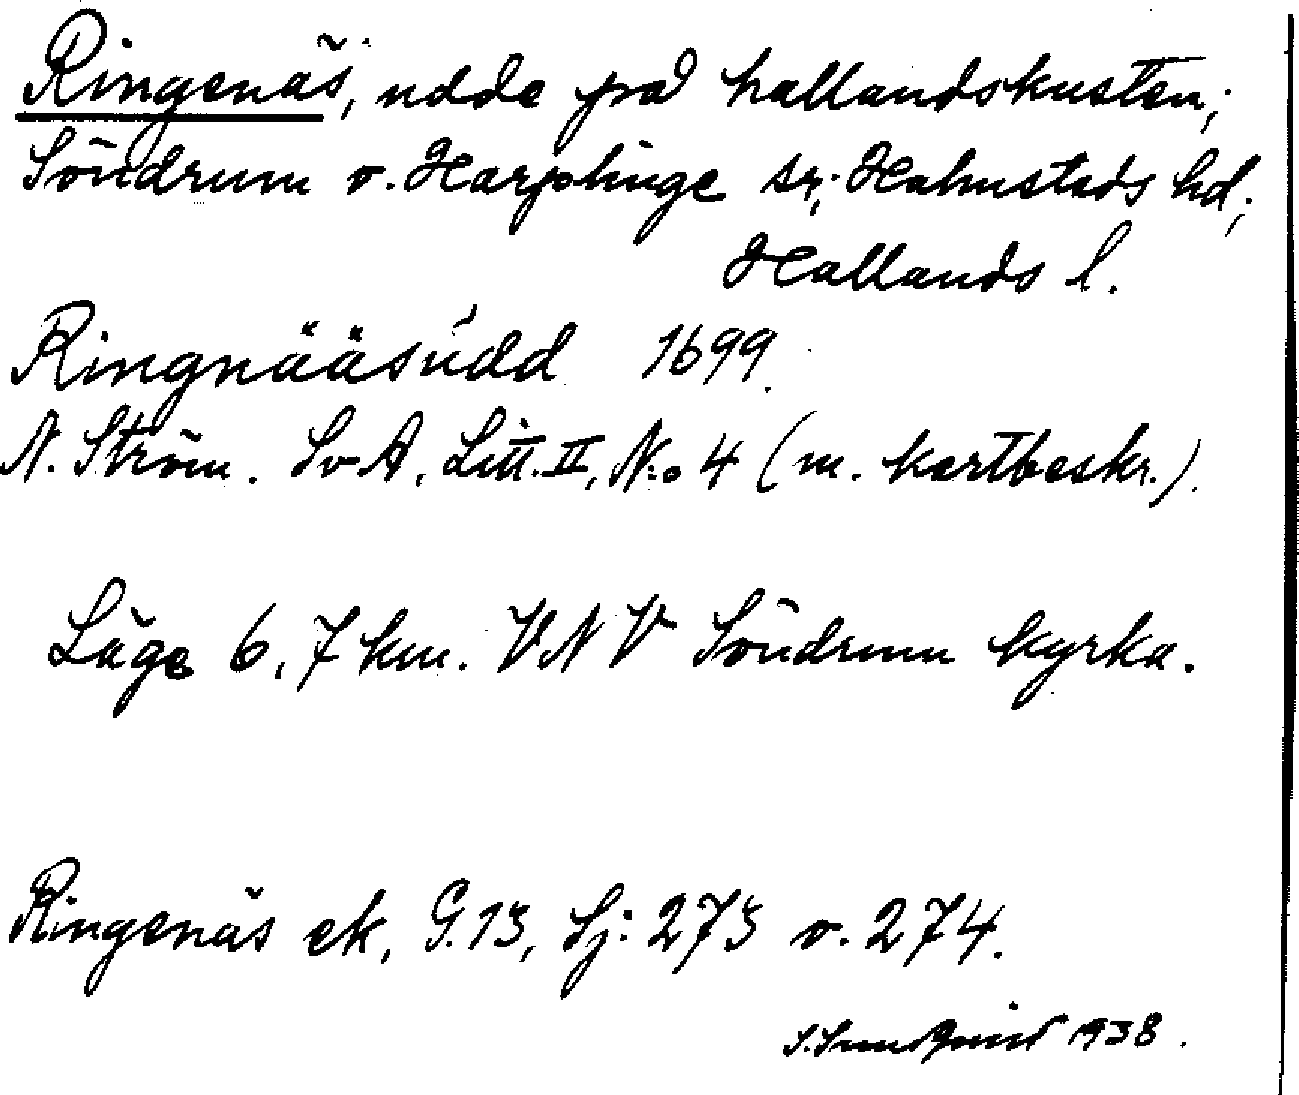 Ringenäs, udde på hallandskusten;
Söndrum o. Harplinge sr; Halmstads hd;
Hallands l.
Ringnääsúdd 1699.
N. Ström. Sv A, Litt. II, N:o 4 (m. kartbeskr.).
Läge 6,7 km. VNV Söndrum kyrka.
Ringenäs ek, G.13, Sj: 273 o. 274.
S. Sundquist 1938.